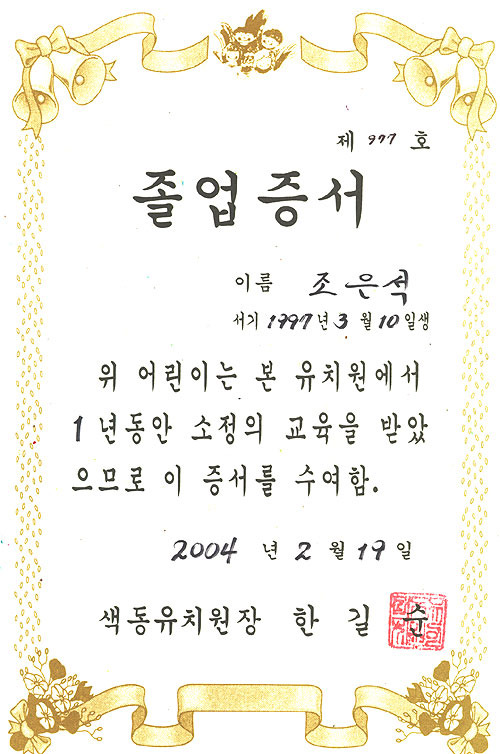 제 977 호
졸업증서
이름 조은석
서기 1997년 3월 10일생
위 어린이는 본 유치원에서
1년동안 소정의 교육을 받았
으므로 이 증서를 수여함.
2004년 2월 19일
색동유치원장 한길순